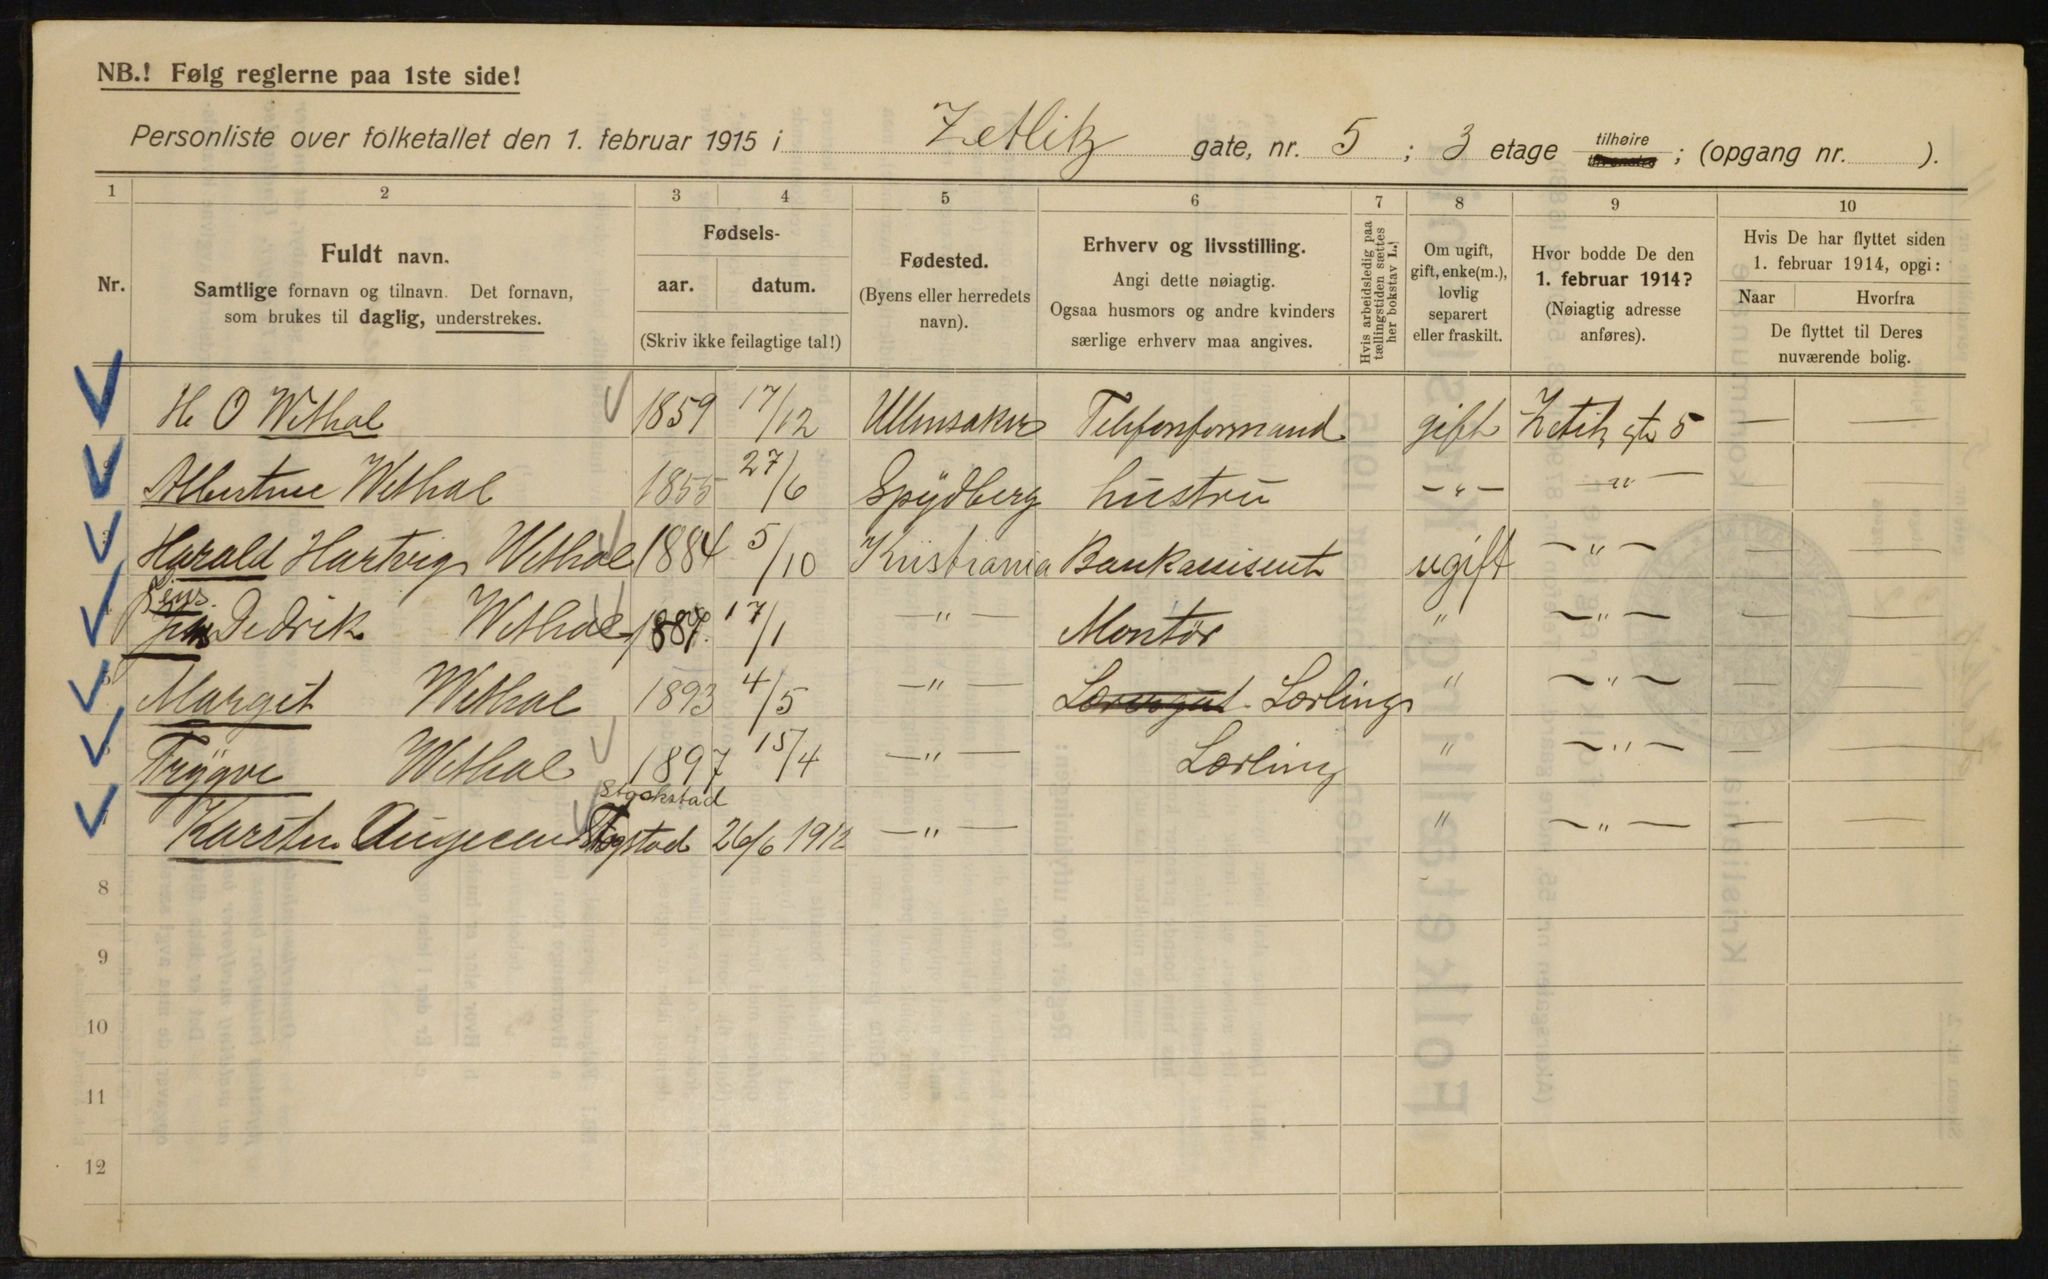 NB.! Følg reglerne paa 1ste side!
Personliste over folketallet den 1. februar 1915 i Zetlitz gate, nr. 5 ; 3 etage tilhøire ; (opgang nr. ).
1 2 3 4 5 6 7 8 9 10
Nr.
Fuldt navn.
Samtlige fornavn og tilnavn. Det fornavn,
som brukes til daglig, understrekes.
Fødsels-
aar. datum.
(Skriv ikke feilagtige tal!)
Fødested.
(Byens eller herredets
navn).
Erhverv og livsstilling.
Angi dette nøiagtig.
Ogsaa husmors og andre kvinders
særlige erhverv maa angives.
Hvis arbeidsledig paa
tællingstiden sættes
her bokstav L.!
Om ugift,
gift, enke(m.),
lovlig
separert
eller fraskilt.
Hvor bodde De den
1. februar 1914?
(Nøiagtig adresse
anføres).
Hvis De har flyttet siden
1. februar 1914, opgi:
Naar Hvorfra
De flyttet til Deres
nuværende bolig.
H. O Wethal 1859 17/12 Ullensaker Telefonformand gift Zetlitz gt 5 — —
Albertine Wethal 1855 27/6 Spydberg hustru —„— —„— — —
Harald Hartvig Wethal 1884 5/10 Kristiania Bankassisent ugift —„— — —
Jens
Dedrik Wethal 17/1 —„— Montør „ —„— — —
Margit Wethal 1893 4/5 —„— Lærling „ —„— — —
Trygve Wethal 1897 15/4 —„— Lærling „ —„— — —
Stockstad
Karsten 26/6 1912 —„— „ —„— — —
8
9
10
11
12